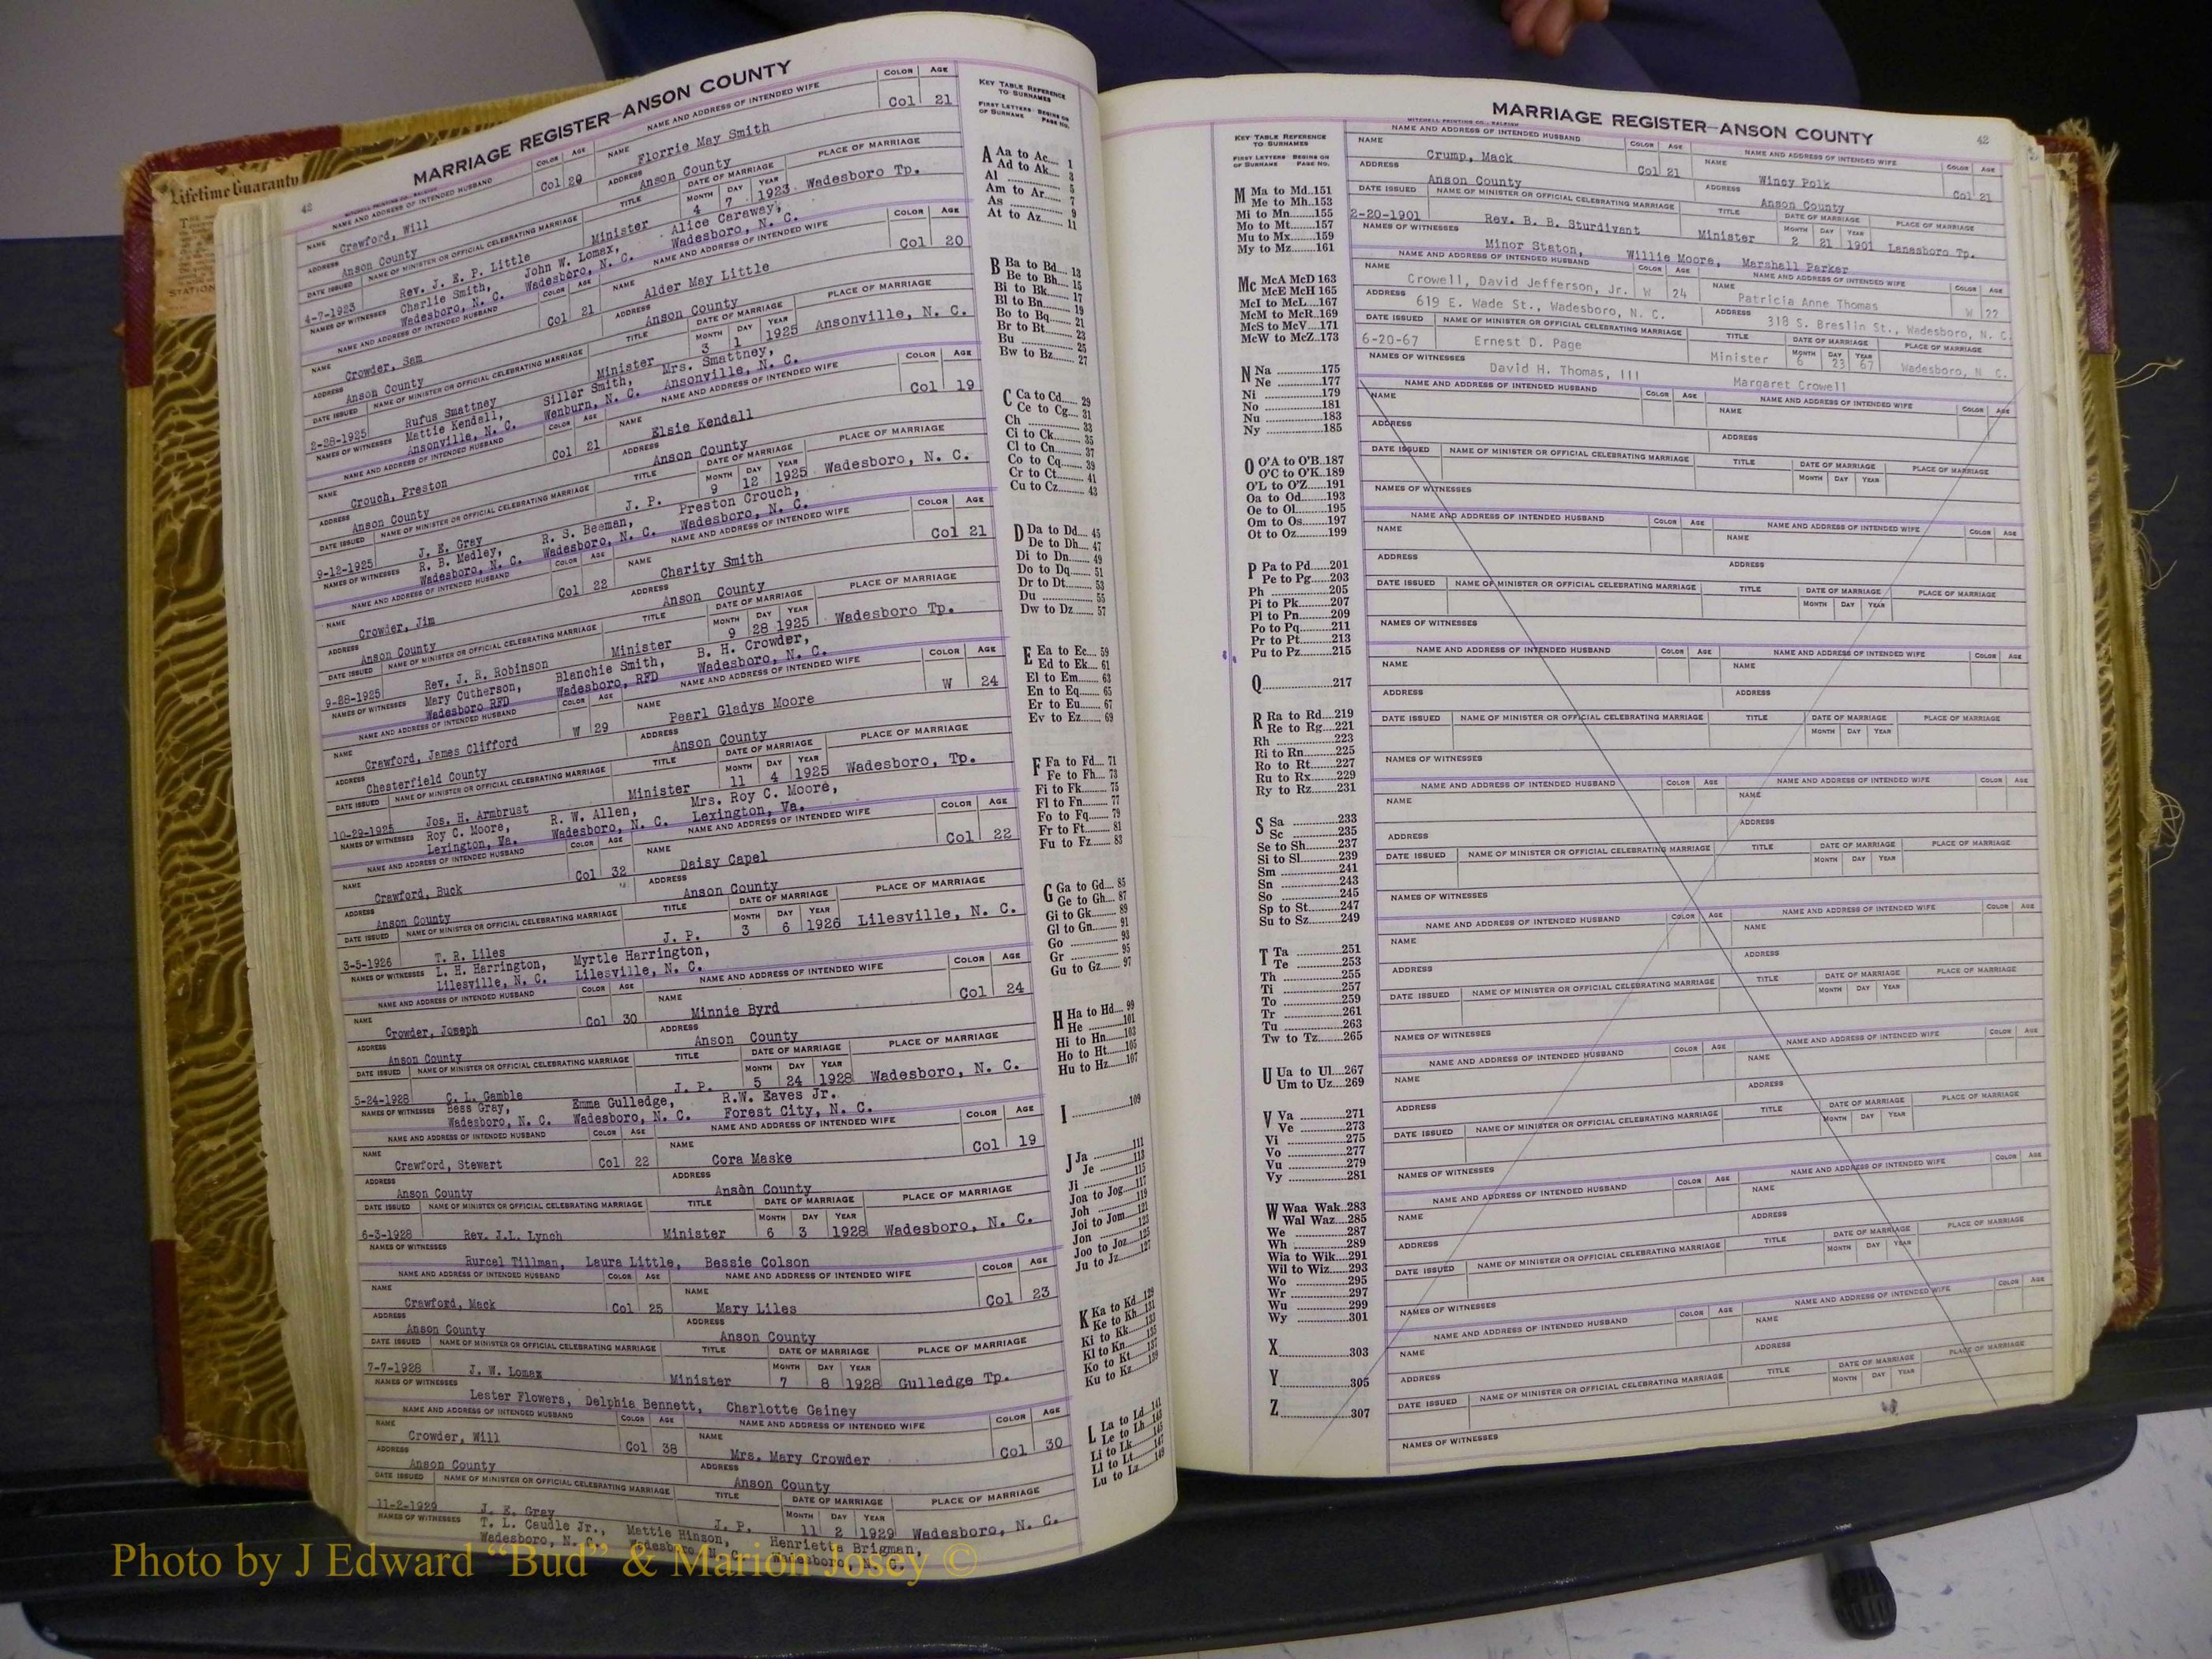 Lifetime Guaranty
42
MARRIAGE REGISTER—ANSON COUNTY
MITCHELL PRINTING CO., RALEIGH
NAME AND ADDRESS OF INTENDED HUSBAND COLOR AGE NAME AND ADDRESS OF INTENDED WIFE COLOR AGE
NAME Crawford, Will Col 29 NAME Florrie May Smith Col 21
ADDRESS Anson County ADDRESS Anson County
DATE ISSUED NAME OF MINISTER OR OFFICIAL CELEBRATING MARRIAGE TITLE DATE OF MARRIAGE MONTH DAY YEAR PLACE OF MARRIAGE
4-7-1923 Rev. J. E. P. Little Minister 4 7 1923 Wadesboro Tp.
NAMES OF WITNESSES Charlie Smith, John W. Lomax, Alice Caraway,
Wadesboro, N. C. Wadesboro, N. C. Wadesboro, N. C.
NAME AND ADDRESS OF INTENDED HUSBAND COLOR AGE NAME AND ADDRESS OF INTENDED WIFE COLOR AGE
NAME Crowder, Sam Col 21 NAME Alder May Little Col 20
ADDRESS Anson County ADDRESS Anson County
DATE ISSUED NAME OF MINISTER OR OFFICIAL CELEBRATING MARRIAGE TITLE DATE OF MARRIAGE MONTH DAY YEAR PLACE OF MARRIAGE
2-28-1925 Rufus Smattney Minister 3 1 1925 Ansonville, N. C.
NAMES OF WITNESSES Mattie Kendall, Siller Smith, Mrs. Smattney,
Ansonville, N. C. Wenburn, N. C. Ansonville, N. C.
NAME AND ADDRESS OF INTENDED HUSBAND COLOR AGE NAME AND ADDRESS OF INTENDED WIFE COLOR AGE
NAME Crouch, Preston Col 21 NAME Elsie Kendall Col 19
ADDRESS Anson County ADDRESS Anson County
DATE ISSUED NAME OF MINISTER OR OFFICIAL CELEBRATING MARRIAGE TITLE DATE OF MARRIAGE MONTH DAY YEAR PLACE OF MARRIAGE
9-12-1925 J. E. Gray J. P. 9 12 1925 Wadesboro, N. C.
NAMES OF WITNESSES R. B. Medley, R. S. Beeman, Preston Crouch,
Wadesboro, N. C. Wadesboro, N. C. Wadesboro, N. C.
NAME AND ADDRESS OF INTENDED HUSBAND COLOR AGE NAME AND ADDRESS OF INTENDED WIFE COLOR AGE
NAME Crowder, Jim Col 22 NAME Charity Smith Col 21
ADDRESS Anson County ADDRESS Anson County
DATE ISSUED NAME OF MINISTER OR OFFICIAL CELEBRATING MARRIAGE TITLE DATE OF MARRIAGE MONTH DAY YEAR PLACE OF MARRIAGE
9-28-1925 Rev. J. R. Robinson Minister 9 28 1925 Wadesboro Tp.
NAMES OF WITNESSES Mary Cutherson, Blanchie Smith, B. H. Crowder,
Wadesboro RFD Wadesboro, RFD Wadesboro, N. C.
NAME AND ADDRESS OF INTENDED HUSBAND COLOR AGE NAME AND ADDRESS OF INTENDED WIFE COLOR AGE
NAME Crawford, James Clifford W 29 NAME Pearl Gladys Moore W 24
ADDRESS Chesterfield County ADDRESS Anson County
DATE ISSUED NAME OF MINISTER OR OFFICIAL CELEBRATING MARRIAGE TITLE DATE OF MARRIAGE MONTH DAY YEAR PLACE OF MARRIAGE
10-29-1925 Jos. H. Armbrust Minister 11 4 1925 Wadesboro, Tp.
NAMES OF WITNESSES Roy C. Moore, R. W. Allen, Mrs. Roy C. Moore,
Lexington, Va. Wadesboro, N. C. Lexington, Va.
NAME AND ADDRESS OF INTENDED HUSBAND COLOR AGE NAME AND ADDRESS OF INTENDED WIFE COLOR AGE
NAME Crawford, Buck Col 32 NAME Daisy Capel Col 22
ADDRESS Anson County ADDRESS Anson County
DATE ISSUED NAME OF MINISTER OR OFFICIAL CELEBRATING MARRIAGE TITLE DATE OF MARRIAGE MONTH DAY YEAR PLACE OF MARRIAGE
3-5-1926 T. R. Liles J. P. 3 6 1926 Lilesville, N. C.
NAMES OF WITNESSES L. H. Harrington, Myrtle Harrington,
Lilesville, N. C. Lilesville, N. C.
NAME AND ADDRESS OF INTENDED HUSBAND COLOR AGE NAME AND ADDRESS OF INTENDED WIFE COLOR AGE
NAME Crowder, Joseph Col 30 NAME Minnie Byrd Col 24
ADDRESS Anson County ADDRESS Anson County
DATE ISSUED NAME OF MINISTER OR OFFICIAL CELEBRATING MARRIAGE TITLE DATE OF MARRIAGE MONTH DAY YEAR PLACE OF MARRIAGE
5-24-1928 C. L. Gamble J. P. 5 24 1928 Wadesboro, N. C.
NAMES OF WITNESSES Bess Gray, Emma Gulledge, R.W. Eaves Jr.
Wadesboro, N. C. Wadesboro, N. C. Forest City, N. C.
NAME AND ADDRESS OF INTENDED HUSBAND COLOR AGE NAME AND ADDRESS OF INTENDED WIFE COLOR AGE
NAME Crawford, Stewart Col 22 NAME Cora Maske Col 19
ADDRESS Anson County ADDRESS Anson County
DATE ISSUED NAME OF MINISTER OR OFFICIAL CELEBRATING MARRIAGE TITLE DATE OF MARRIAGE MONTH DAY YEAR PLACE OF MARRIAGE
6-3-1928 Rev. J.L. Lynch Minister 6 3 1928 Wadesboro, N. C.
NAMES OF WITNESSES
Rurcel Tillman, Laura Little, Bessie Colson
NAME AND ADDRESS OF INTENDED HUSBAND COLOR AGE NAME AND ADDRESS OF INTENDED WIFE COLOR AGE
NAME Crawford, Mack Col 25 NAME Mary Liles Col 23
ADDRESS Anson County ADDRESS Anson County
DATE ISSUED NAME OF MINISTER OR OFFICIAL CELEBRATING MARRIAGE TITLE DATE OF MARRIAGE MONTH DAY YEAR PLACE OF MARRIAGE
7-7-1928 J. W. Lomax Minister 7 8 1928 Gulledge Tp.
NAMES OF WITNESSES
Lester Flowers, Delphia Bennett, Charlotte Gainey
NAME AND ADDRESS OF INTENDED HUSBAND COLOR AGE NAME AND ADDRESS OF INTENDED WIFE COLOR AGE
NAME Crowder, Will Col 38 NAME Mrs. Mary Crowder Col 30
ADDRESS Anson County ADDRESS Anson County
DATE ISSUED NAME OF MINISTER OR OFFICIAL CELEBRATING MARRIAGE TITLE DATE OF MARRIAGE MONTH DAY YEAR PLACE OF MARRIAGE
11-2-1929 J. E. Gray J. P. 11 2 1929 Wadesboro, N. C.
NAMES OF WITNESSES T. L. Caudle Jr., Mattie Hinson, Henrietta Brigman,
Wadesboro, N. C. Wadesboro, N. C. Wadesboro, N. C.
KEY TABLE REFERENCE
TO SURNAMES
FIRST LETTERS OF SURNAME BEGINS ON PAGE NO.
A Aa to Ac 1
Ad to Ak 3
Al 5
Am to Ar 7
As 9
At to Az 11
B Ba to Bd 13
Be to Bh 15
Bi to Bk 17
Bl to Bn 19
Bo to Bq 21
Br to Bt 23
Bu 25
Bw to Bz 27
C Ca to Cd 29
Ce to Cg 31
Ch 33
Ci to Ck 35
Cl to Cn 37
Co to Cq 39
Cr to Ct 41
Cu to Cz 43
D Da to Dd 45
De to Dh 47
Di to Dn 49
Do to Dq 51
Dr to Dt 53
Du 55
Dw to Dz 57
E Ea to Ec 59
Ed to Ek 61
El to Em 63
En to Eq 65
Er to Eu 67
Ev to Ez 69
F Fa to Fd 71
Fe to Fh 73
Fi to Fk 75
Fl to Fn 77
Fo to Fq 79
Fr to Ft 81
Fu to Fz 83
G Ga to Gd 85
Ge to Gh 87
Gi to Gk 89
Gl to Gn 91
Go 93
Gr 95
Gu to Gz 97
H Ha to Hd 99
He 101
Hi to Hn 103
Ho to Ht 105
Hu to Hz 107
I 109
J Ja 111
Je 113
Ji 115
Joa to Jog 117
Joh 119
Joi to Jom 121
Jon 123
Joo to Joz 125
Ju to Jz 127
K Ka to Kd 129
Ke to Kh 131
Ki to Kk 133
Kl to Kn 135
Ko to Kt 137
Ku to Kz 139
L La to Ld 141
Le to Lh 143
Li to Lk 145
Ll to Lt 147
Lu to Lz 149
KEY TABLE REFERENCE
TO SURNAMES
FIRST LETTERS OF SURNAME BEGINS ON PAGE NO.
M Ma to Md 151
Me to Mh 153
Mi to Mn 155
Mo to Mt 157
Mu to Mx 159
My to Mz 161
Mc McA McD 163
McE McH 165
McI to McL 167
McM to McR 169
McS to McV 171
McW to McZ 173
N Na 175
Ne 177
Ni 179
No 181
Nu 183
Ny 185
O O'A to O'B 187
O'C to O'K 189
O'L to O'Z 191
Oa to Od 193
Oe to Ol 195
Om to Os 197
Ot to Oz 199
P Pa to Pd 201
Pe to Pg 203
Ph 205
Pi to Pk 207
Pl to Pn 209
Po to Pq 211
Pr to Pt 213
Pu to Pz 215
Q 217
R Ra to Rd 219
Re to Rg 221
Rh 223
Ri to Rn 225
Ro to Rt 227
Ru to Rx 229
Ry to Rz 231
S Sa 233
Sc 235
Se to Sh 237
Si to Sl 239
Sm 241
Sn 243
So 245
Sp to St 247
Su to Sz 249
T Ta 251
Te 253
Th 255
Ti 257
To 259
Tr 261
Tu 263
Tw to Tz 265
U Ua to Ul 267
Um to Uz 269
V Va 271
Ve 273
Vi 275
Vo 277
Vu 279
Vy 281
W Waa Wak 283
Wal Waz 285
We 287
Wh 289
Wia to Wik 291
Wil to Wiz 293
Wo 295
Wr 297
Wu 299
Wy 301
X 303
Y 305
Z 307
MARRIAGE REGISTER—ANSON COUNTY
42
MITCHELL PRINTING CO., RALEIGH
NAME AND ADDRESS OF INTENDED HUSBAND COLOR AGE NAME AND ADDRESS OF INTENDED WIFE COLOR AGE
NAME Crump, Mack Col 21 NAME Wincy Polk Col 21
ADDRESS Anson County ADDRESS Anson County
DATE ISSUED NAME OF MINISTER OR OFFICIAL CELEBRATING MARRIAGE TITLE DATE OF MARRIAGE MONTH DAY YEAR PLACE OF MARRIAGE
2-20-1901 Rev. B. B. Sturdivant Minister 2 21 1901 Lanesboro Tp.
NAMES OF WITNESSES
Minor Staton, Willie Moore, Marshall Parker
NAME AND ADDRESS OF INTENDED HUSBAND COLOR AGE NAME AND ADDRESS OF INTENDED WIFE COLOR AGE
NAME Crowell, David Jefferson, Jr. W 24 NAME Patricia Anne Thomas W 22
ADDRESS 619 E. Wade St., Wadesboro, N. C. ADDRESS 318 S. Breslin St., Wadesboro, N. C.
DATE ISSUED NAME OF MINISTER OR OFFICIAL CELEBRATING MARRIAGE TITLE DATE OF MARRIAGE MONTH DAY YEAR PLACE OF MARRIAGE
6-20-67 Ernest D. Page Minister 6 23 67 Wadesboro, N C.
NAMES OF WITNESSES
David H. Thomas, III Margaret Crowell
NAME AND ADDRESS OF INTENDED HUSBAND COLOR AGE NAME AND ADDRESS OF INTENDED WIFE COLOR AGE
NAME NAME
ADDRESS ADDRESS
DATE ISSUED NAME OF MINISTER OR OFFICIAL CELEBRATING MARRIAGE TITLE DATE OF MARRIAGE MONTH DAY YEAR PLACE OF MARRIAGE
NAMES OF WITNESSES
NAME AND ADDRESS OF INTENDED HUSBAND COLOR AGE NAME AND ADDRESS OF INTENDED WIFE COLOR AGE
NAME NAME
ADDRESS ADDRESS
DATE ISSUED NAME OF MINISTER OR OFFICIAL CELEBRATING MARRIAGE TITLE DATE OF MARRIAGE MONTH DAY YEAR PLACE OF MARRIAGE
NAMES OF WITNESSES
NAME AND ADDRESS OF INTENDED HUSBAND COLOR AGE NAME AND ADDRESS OF INTENDED WIFE COLOR AGE
NAME NAME
ADDRESS ADDRESS
DATE ISSUED NAME OF MINISTER OR OFFICIAL CELEBRATING MARRIAGE TITLE DATE OF MARRIAGE MONTH DAY YEAR PLACE OF MARRIAGE
NAMES OF WITNESSES
NAME AND ADDRESS OF INTENDED HUSBAND COLOR AGE NAME AND ADDRESS OF INTENDED WIFE COLOR AGE
NAME NAME
ADDRESS ADDRESS
DATE ISSUED NAME OF MINISTER OR OFFICIAL CELEBRATING MARRIAGE TITLE DATE OF MARRIAGE MONTH DAY YEAR PLACE OF MARRIAGE
NAMES OF WITNESSES
NAME AND ADDRESS OF INTENDED HUSBAND COLOR AGE NAME AND ADDRESS OF INTENDED WIFE COLOR AGE
NAME NAME
ADDRESS ADDRESS
DATE ISSUED NAME OF MINISTER OR OFFICIAL CELEBRATING MARRIAGE TITLE DATE OF MARRIAGE MONTH DAY YEAR PLACE OF MARRIAGE
NAMES OF WITNESSES
NAME AND ADDRESS OF INTENDED HUSBAND COLOR AGE NAME AND ADDRESS OF INTENDED WIFE COLOR AGE
NAME NAME
ADDRESS ADDRESS
DATE ISSUED NAME OF MINISTER OR OFFICIAL CELEBRATING MARRIAGE TITLE DATE OF MARRIAGE MONTH DAY YEAR PLACE OF MARRIAGE
NAMES OF WITNESSES
NAME AND ADDRESS OF INTENDED HUSBAND COLOR AGE NAME AND ADDRESS OF INTENDED WIFE COLOR AGE
NAME NAME
ADDRESS ADDRESS
DATE ISSUED NAME OF MINISTER OR OFFICIAL CELEBRATING MARRIAGE TITLE DATE OF MARRIAGE MONTH DAY YEAR PLACE OF MARRIAGE
NAMES OF WITNESSES
NAME AND ADDRESS OF INTENDED HUSBAND COLOR AGE NAME AND ADDRESS OF INTENDED WIFE COLOR AGE
NAME NAME
ADDRESS ADDRESS
DATE ISSUED NAME OF MINISTER OR OFFICIAL CELEBRATING MARRIAGE TITLE DATE OF MARRIAGE MONTH DAY YEAR PLACE OF MARRIAGE
NAMES OF WITNESSES
Photo by J Edward “Bud” & Marion Josey ©